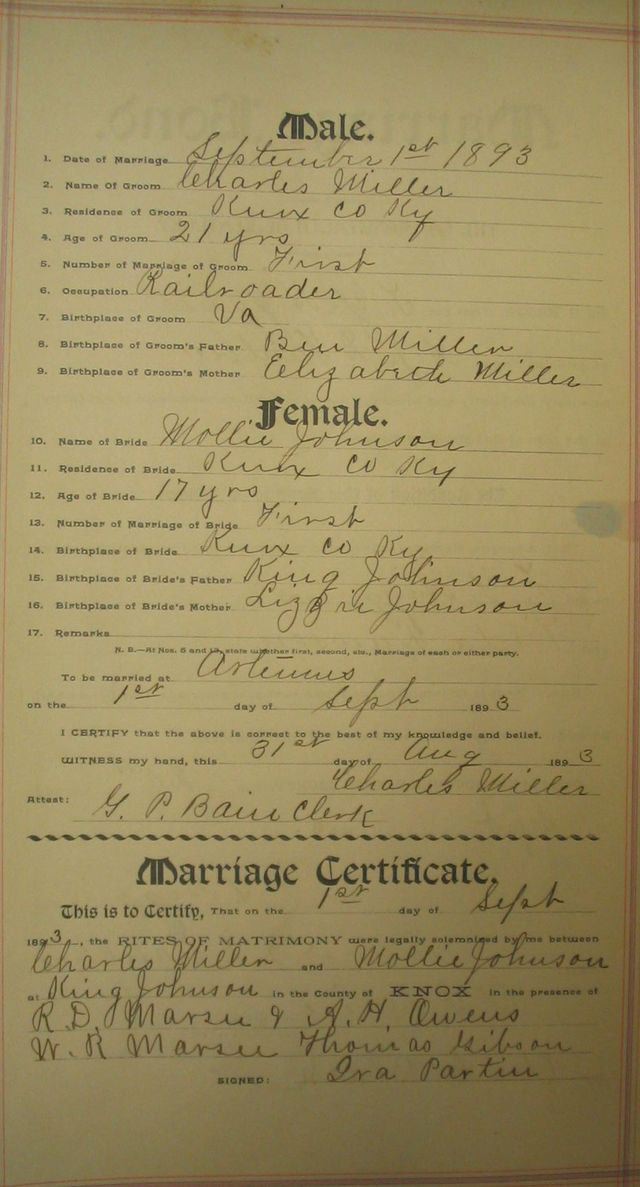 Male.
1. Date of Marriage September 1st 1893
2. Name Of Groom Charles Miller
3. Residence of Groom Knox Co Ky
4. Age of Groom 21 yrs
5. Number of Marriage of Groom First
6. Occupation Railroader
7. Birthplace of Groom Va
8. Birthplace of Groom's Father Ben Miller
9. Birthplace of Groom's Mother Elizabeth Miller
Female.
10. Name of Bride Mollie Johnson
11. Residence of Bride Knox Co Ky
12. Age of Bride 17 yrs
13. Number of Marriage of Bride First
14. Birthplace of Bride Knox Co Ky
15. Birthplace of Bride's Father King Johnson
16. Birthplace of Bride's Mother Lizzie Johnson
17. Remarks
N. B.—At Nos. 5 and 13, state whether first, second, etc., Marriage of each or either party.
To be married at Artemus
on the 1st day of Sept 1893
I CERTIFY that the above is correct to the best of my knowledge and belief.
WITNESS my hand, this 31st day of Aug 1893
Charles Miller
Attest: G. P. Bain Clerk
Marriage Certificate.
This is to Certify, That on the 1st day of Sept
1893, the RITES OF MATRIMONY were legally solemnized by me between
Charles Miller and Mollie Johnson
at King Johnson in the County of KNOX in the presence of
R. D. Marsee & A. H. Owens
W. R Marsee Thomas Gibson
SIGNED: Ira Partin